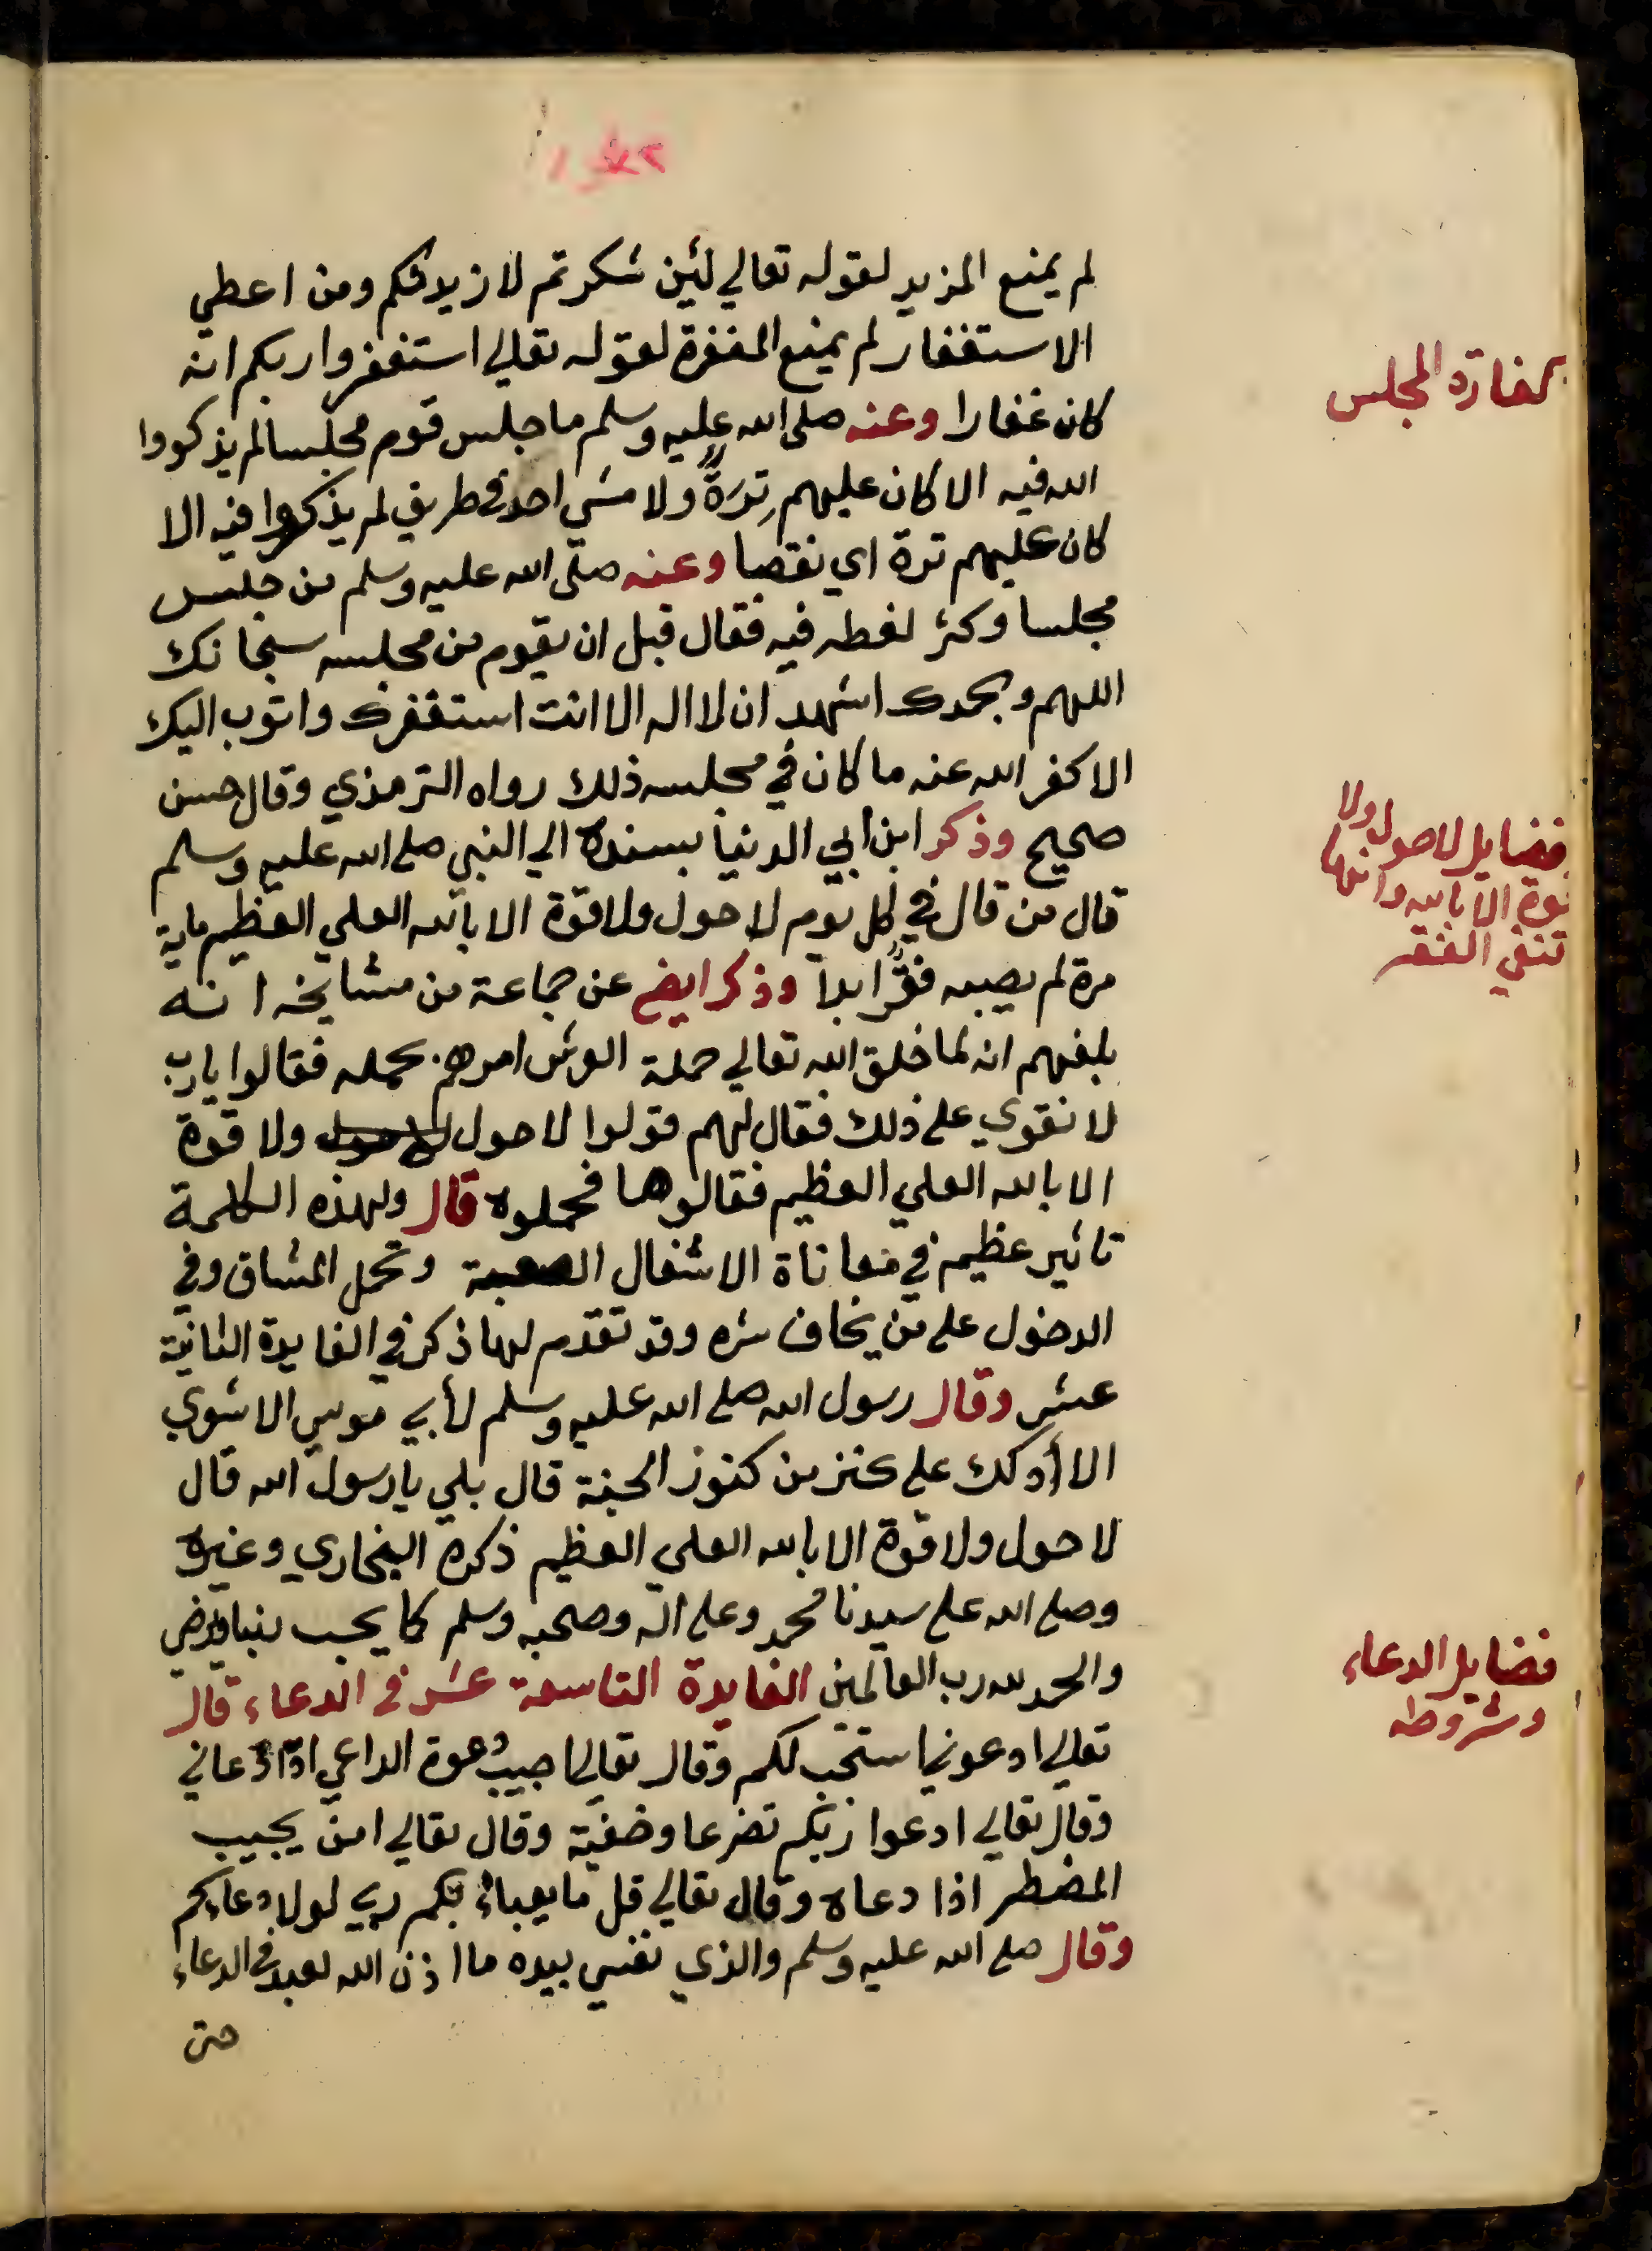 لم يمنع المزيد لقوله تعالي لئين شكرتم لازيدنكم ومن اعطي
الاستغفار لم يمنع المغفرة لقوله تعالي استغفروا ربكم انه
كان غفارا وعنه صلى الله عليه وسلم ما جلس قوم مجلسا لم يذكروا
الله فيه الا كان عليهم تِرَةٌ ولا مشي احد في طريق لم يذكروا فيه الا
كان عليهم ترة اي نقصا وعنه صلى الله عليه وسلم من جلس
مجلسا وكثر لغطه فيه فقال قبل ان يقوم من مجلسه سبحانك
اللهم وبحمدك اشهد ان لا اله الا انت استغفرك واتوب اليك
الا كفر الله عنه ما كان في مجلسه ذلك رواه الترمذي وقال حسن
صحيح وذكر ابن ابي الدنيا بسنده الي النبي صلى الله عليه وسلم
قال من قال في كل يوم لا حول ولا قوة الا بالله العلي العظيم ماية
مرة لم يصبه فقرٌ ابدا وذكر ايض عن جماعة من مشايخه انه
بلغهم انه لما خلق الله تعالي حملة العرش امرهم بحمله فقالوا يا رب
لا نقوي على ذلك فقال لهم قولوا لا حول لا حول ولا قوة
الا بالله العلي العظيم فقالوها فحملوه قال ولهذه الكلمة
تاثير عظيم في معاناة الاشغال الصعبة وتحمل المشاق وفي
الدخول على من يخاف شره وقد تقدم لها ذكر في الفايدة الثانية
عشر وقال رسول الله صلى الله عليه وسلم لأبي موسي الاشعري
الا أدلك على كنز من كنوز الجنة قال بلي يا رسول الله قال
لا حول ولا قوة الا بالله العلي العظيم ذكره البخاري وغيره
وصلى الله على سيدنا محمد وعلى اله وصحبه وسلم كما يحب ربنا ويرضي
والحمد لله رب العالمين الفايدة التاسعة عشر في الدعاء قال
تعالي ادعوني استجب لكم وقال تعالي اجيب دعوة الداعي اذا دعاني
وقال تعالي ادعوا ربكم تضرعا وخفية وقال تعالي امن يجيب
المضطر اذا دعاه وقال تعالي قل ما يعباء بكم ربي لولا دعاءكم
وقال صلى الله عليه وسلم والذي نفسي بيده ما اذن الله لعبد في الدعاء
حتى
كفارة المجلس
فضايل لا حول ولا
قوة الا بالله وانها
تنفي الفقر
فضايل الدعاء
وشروطه